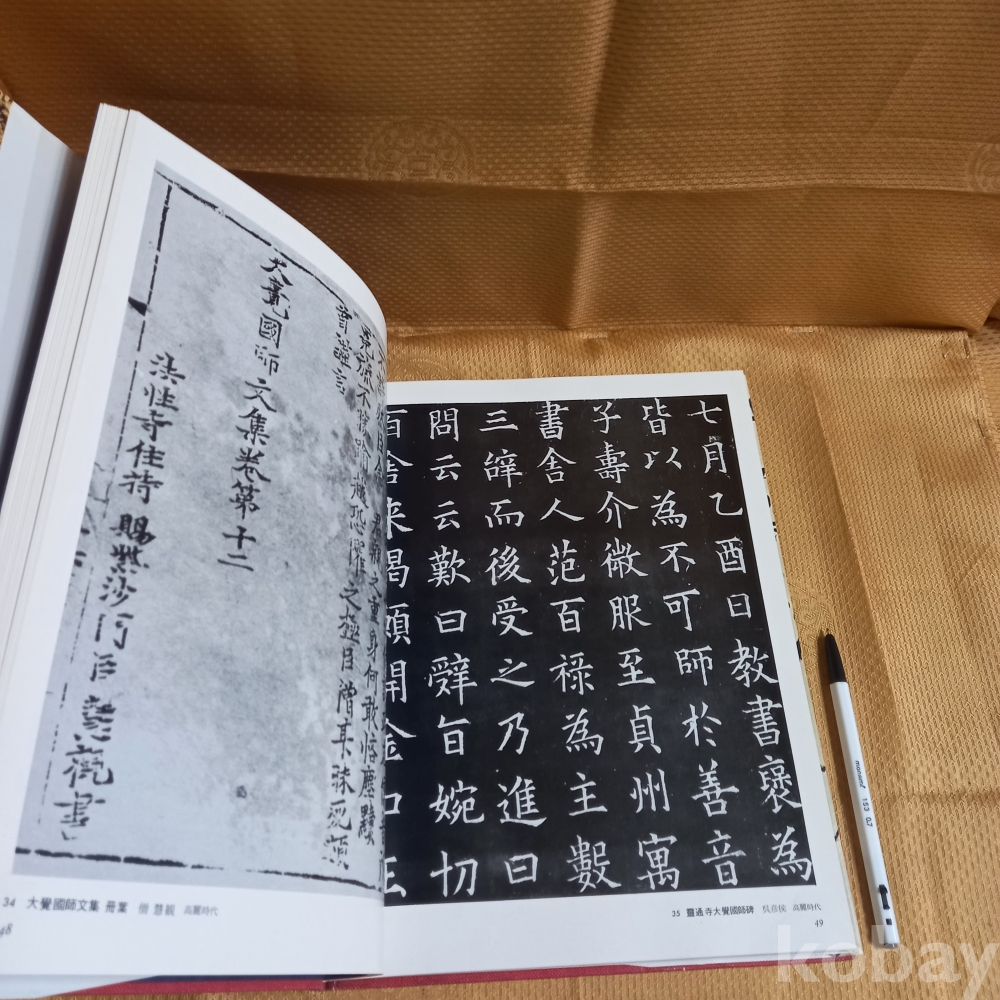 之重身何敢
大覺國師文集卷第十二
法性寺住持 賜紫沙門臣慧觀書
34 大覺國師文集 冊葉 僧 慧観 高麗時代
48
七月乙酉日教書褒為
皆以為不可師於善音
子壽介微服至貞州寓
書舍人范百祿為主數
三辝而後受之乃進曰
問云云歎曰辤旨婉切
百舍来謁願開金口
35 靈通寺大覺國師碑 吳彦侯 高麗時代
49
monami 153 0.7
kobay